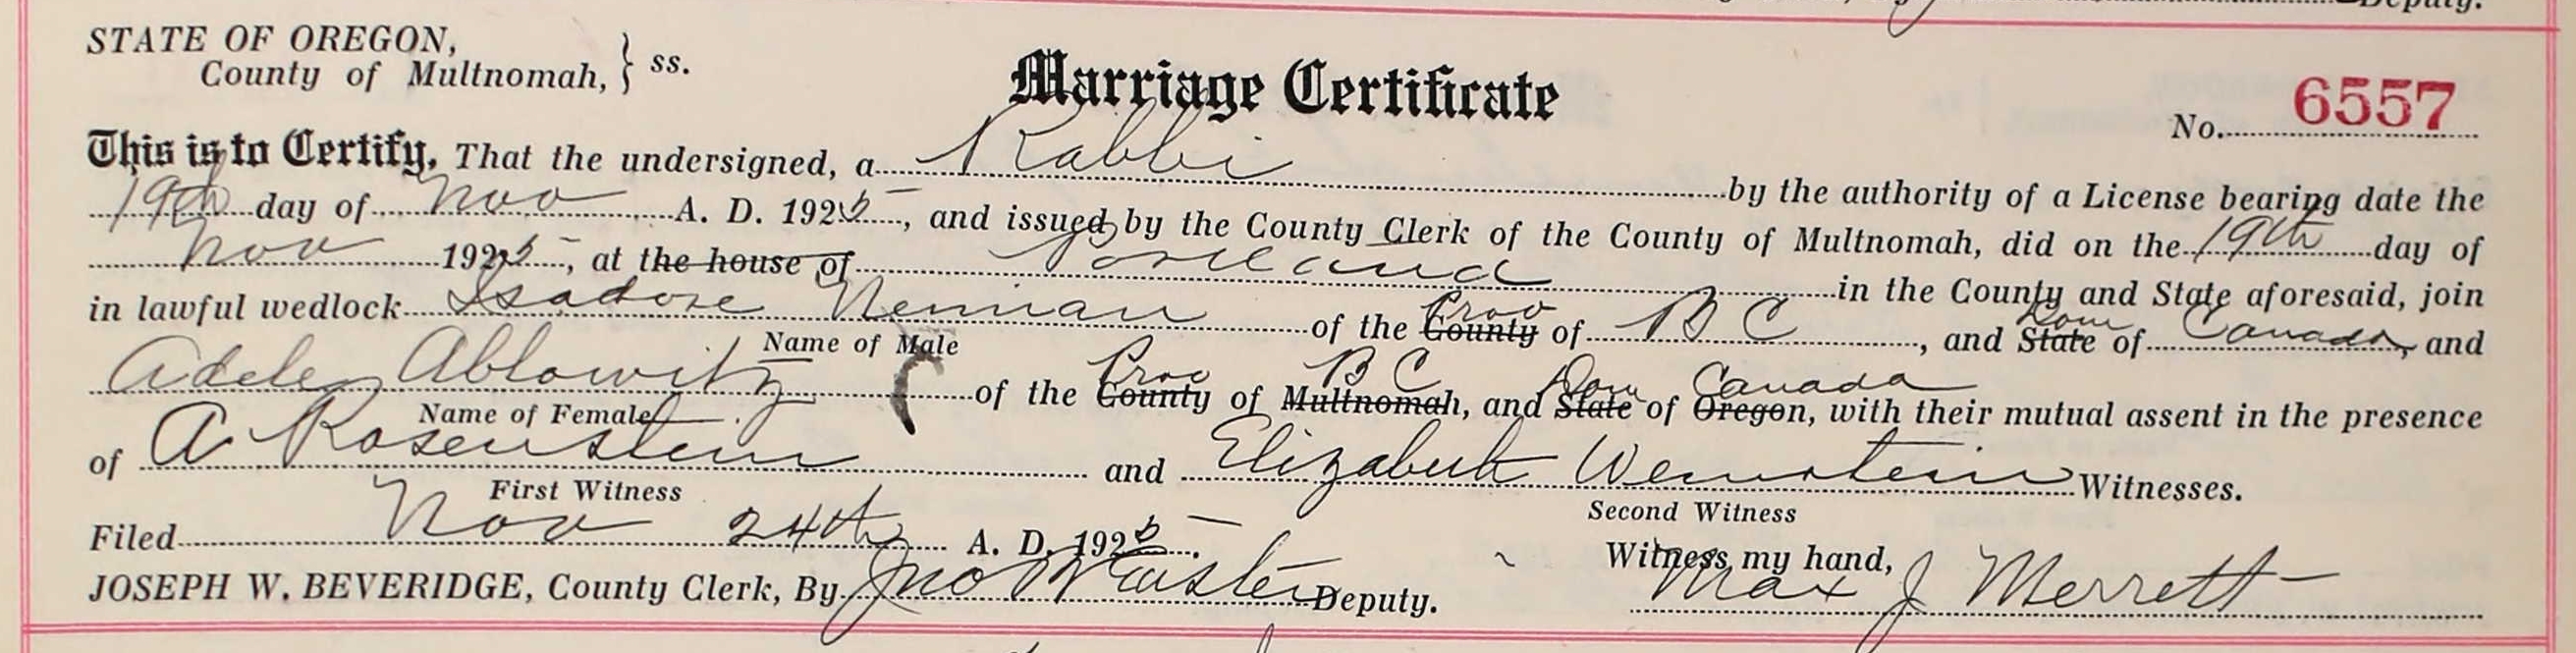 STATE OF OREGON,
County of Multnomah, } ss.
Marriage Certificate
No. 6557
This is to Certify, That the undersigned, a Rabbi by the authority of a License bearing date the
19th day of Nov A. D. 1925, and issued by the County Clerk of the County of Multnomah, did on the 19th day of
Nov 1925, at the house of Portland in the County and State aforesaid, join
in lawful wedlock Isadore Neiman of the County Prov of B C, and State Dom of Canada, and
Name of Male
Adele Ablowitz of the County Prov of Multnomah B C, and State Dom of Oregon Canada, with their mutual assent in the presence
Name of Female
of A Rosenstein and Elizabeth Weinstein Witnesses.
First Witness
Second Witness
Filed Nov 24th A. D. 1925.
Witness my hand,
JOSEPH W. BEVERIDGE, County Clerk, By Jno Deputy.
Max J Merrett